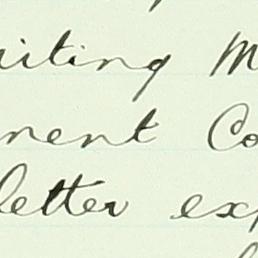 iting M
ment Co
letter exp